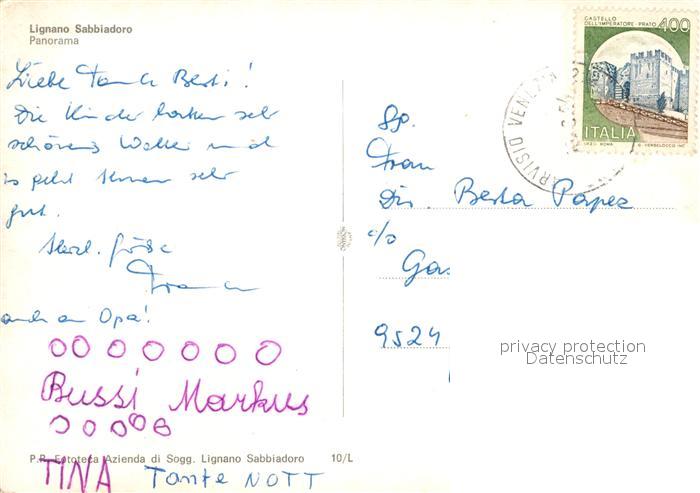 Lignano Sabbiadoro
Panorama
Liebe Tante Berti!
Die Kinder hatten sehr
schönes Wetter und
es geht ihnen sehr
gut.
Herzl. Grüße
auch an Opa!
OO O O O O O
Bussi Markus
O O O O O
P.R. Fototeca Azienda di Sogg. Lignano Sabbiadoro 10/L
TINA Tante NOTT
CASTELLO
DELL'IMPERATORE - PRATO 400
ITALIA
I.P.Z.S. ROMA
TARVISIO VENEZIA
Frau
Dir. Berta Papez
c/o
9524
privacy protection
Datenschutz